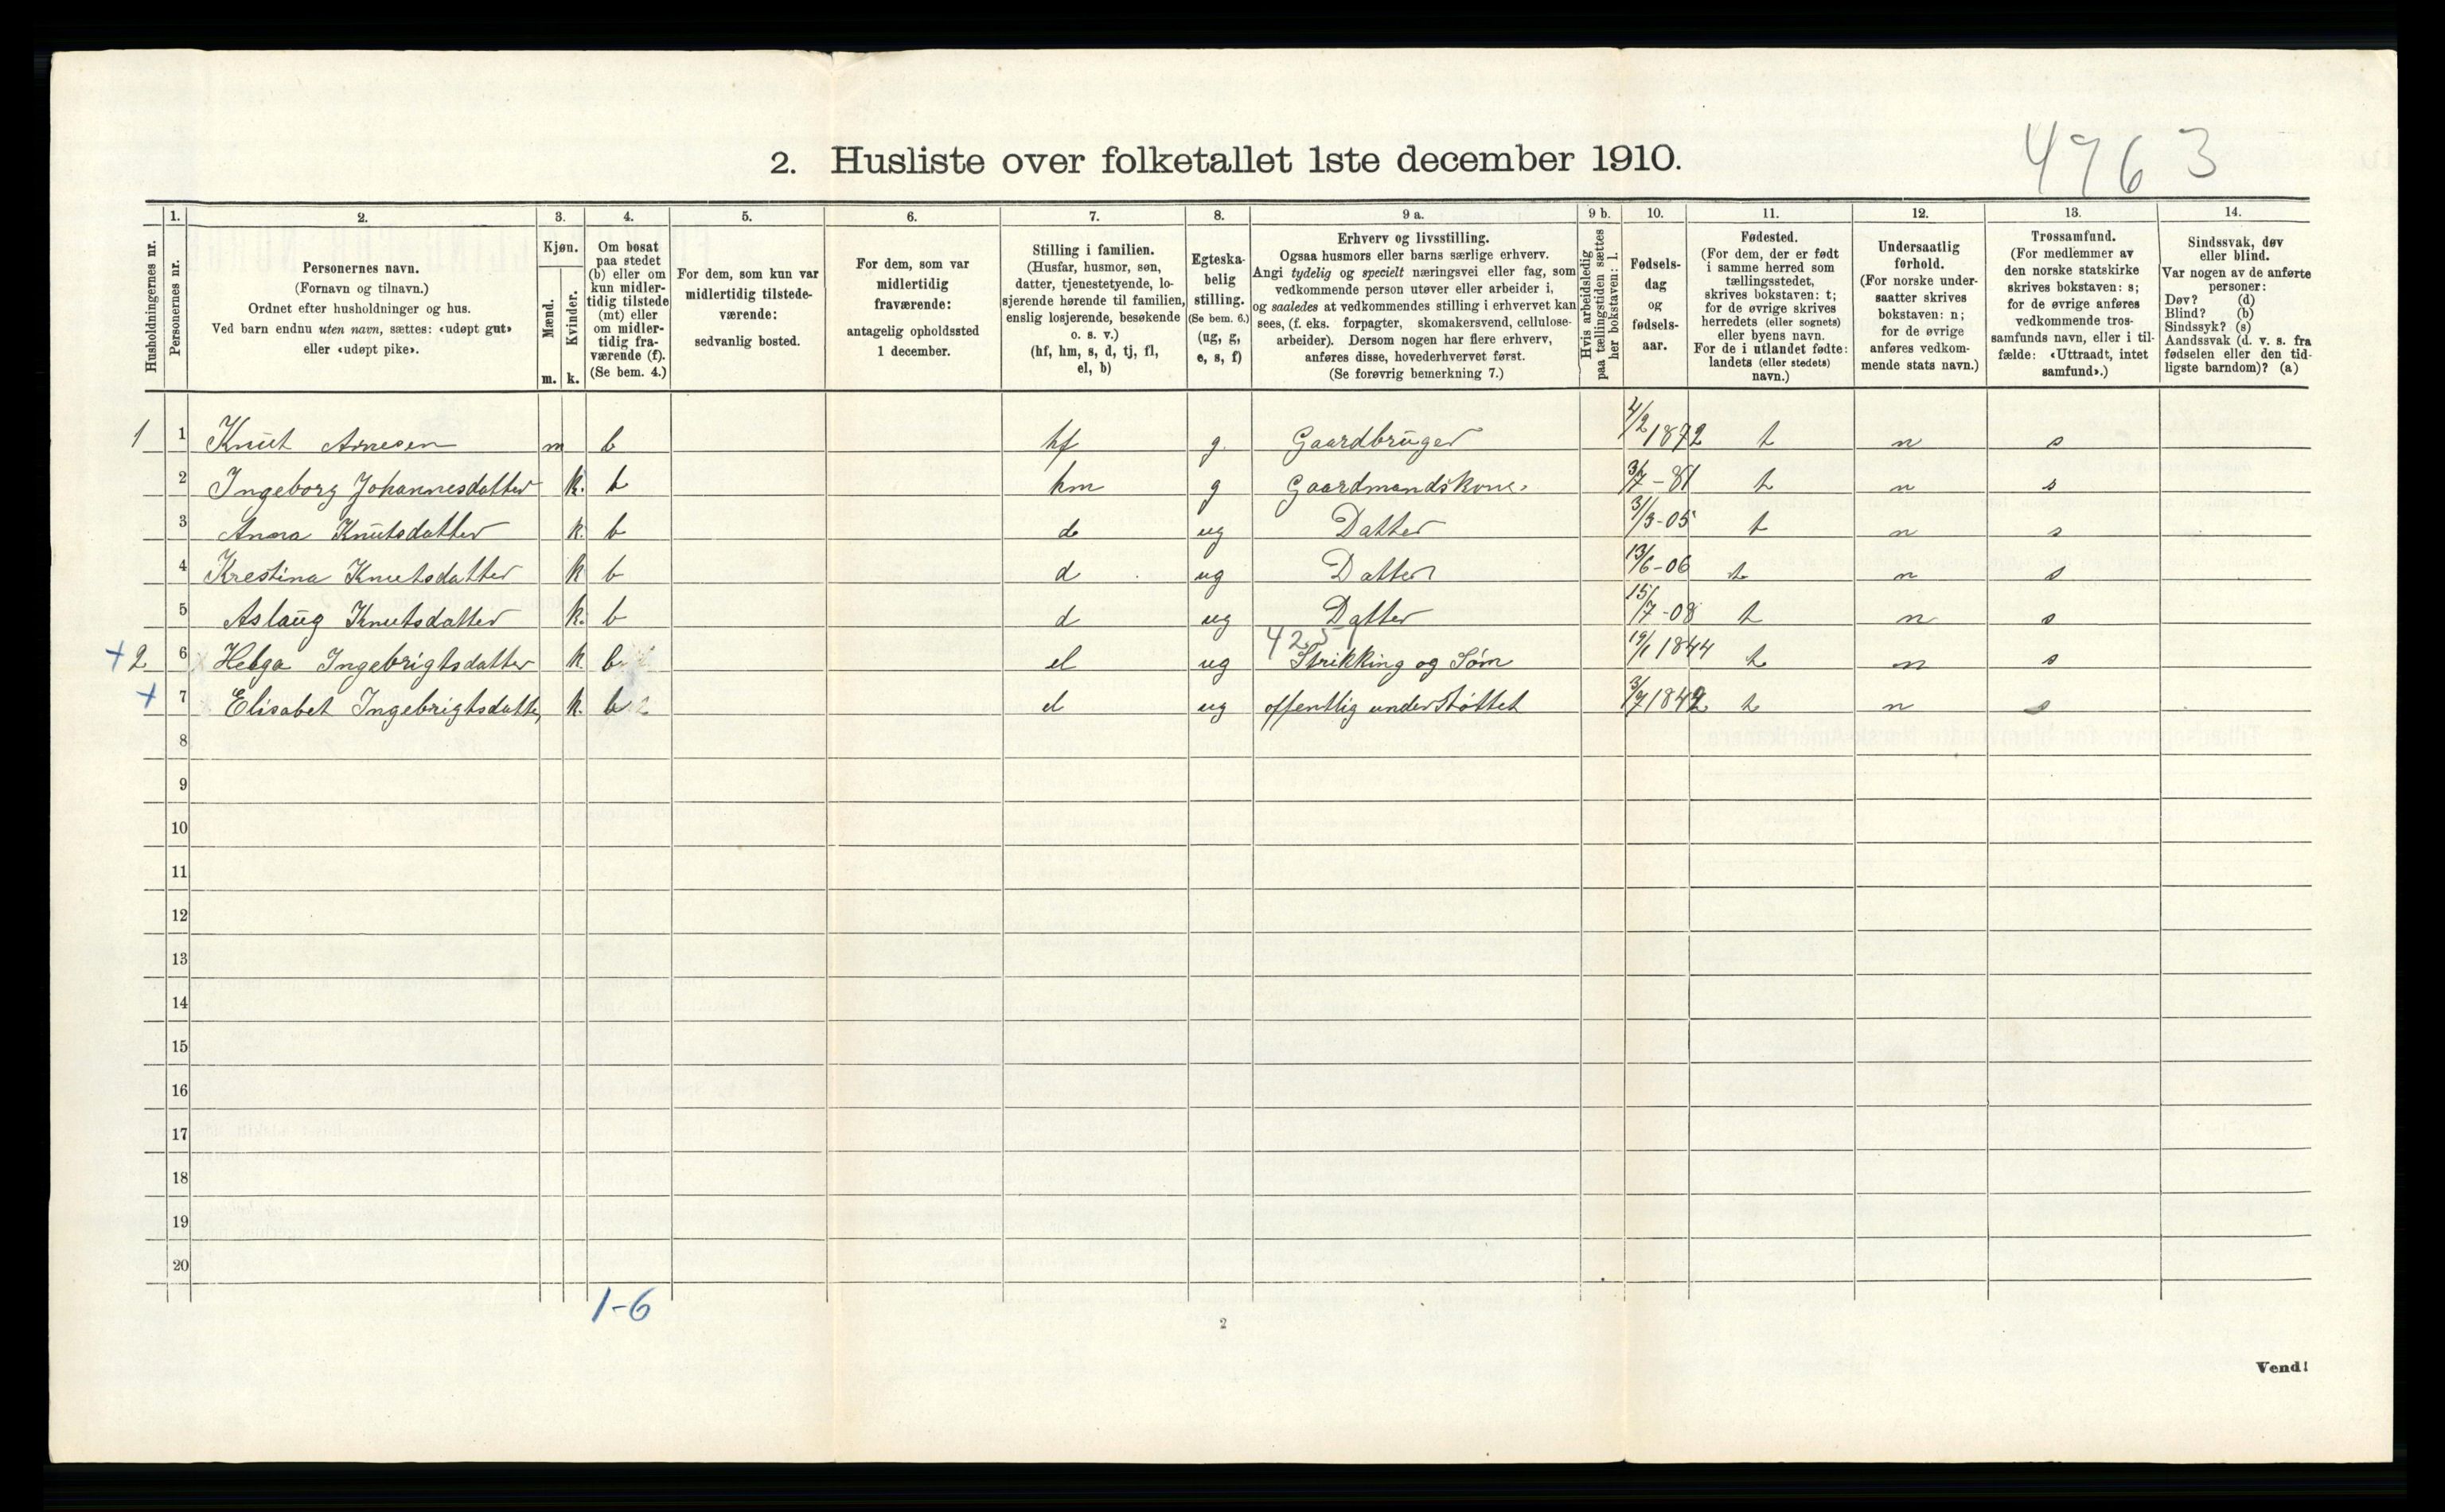 4763
2. Husliste over folketallet 1ste december 1910.
Husholdningernes nr.
1. Personernes nr.
2. Personernes navn. (Fornavn og tilnavn.) Ordnet efter husholdninger og hus. Ved barn endnu uten navn, sættes: «udøpt gut» eller «udøpt pike».
3. Kjøn. Mænd. m. Kvinder. k.
4. Om bosat paa stedet (b) eller om kun midlertidig tilstede (mt) eller om midlertidig fraværende (f). (Se bem. 4.)
5. For dem, som kun var midlertidig tilstedeværende: sedvanlig bosted.
6. For dem, som var midlertidig fraværende: antagelig opholdssted 1 december.
7. Stilling i familien. (Husfar, husmor, søn, datter, tjenestetyende, losjerende hørende til familien, enslig losjerende, besøkende o. s. v.) (hf, hm, s, d, tj, fl, el, b)
8. Egteskabelig stilling. (Se bem. 6.) (ug, g, e, s, f)
9 a. Erhverv og livsstilling. Ogsaa husmors eller barns særlige erhverv. Angi tydelig og specielt næringsvei eller fag, som vedkommende person utøver eller arbeider i, og saaledes at vedkommendes stilling i erhvervet kan sees, (f. eks. forpagter, skomakersvend, cellulosearbeider). Dersom nogen har flere erhverv, anføres disse, hovederhvervet først. (Se forøvrig bemerkning 7.)
9 b. Hvis arbeidsledig paa tællingstiden sættes her bokstaven: l.
10. Fødselsdag og fødselsaar.
11. Fødested. (For dem, der er født i samme herred som tællingsstedet, skrives bokstaven: t; for de øvrige skrives herredets (eller sognets) eller byens navn. For de i utlandet fødte: landets (eller stedets) navn.)
12. Undersaatlig forhold. (For norske undersaatter skrives bokstaven: n; for de øvrige anføres vedkommende stats navn.)
13. Trossamfund. (For medlemmer av den norske statskirke skrives bokstaven: s; for de øvrige anføres vedkommende trossamfunds navn, eller i tilfælde: «Uttraadt, intet samfund».)
14. Sindssvak, døv eller blind. Var nogen av de anførte personer: Døv? (d) Blind? (b) Sindssyk? (s) Aandssvak (d. v. s. fra fødselen eller den tidligste barndom)? (a)
1 1 Knut Arnesen m b hf g. Gaardbruger 4/2 1872 t n s
2 Ingeborg Johannesdatter k. b hm g Gaardmandskone. 3/7 - 81 t n s
3 Anna Knutsdatter k. b d ug Datter 3/3-05 t n s
4 Krestina Knutsdatter k b d ug Datter 13/6-06 t n s
5 Aslaug Knutsdatter k. b d ug Datter 15/7-08 t n s
+2 6 Helga Ingebrigtsdatter k. b el ug Strikking og Søm 19/1 1844 t n s
+ 7 Elisabet Ingebrigtsdatter k. b el ug offentlig understøttet 3/7 1842 t n s
8
9
10
11
12
13
14
15
16
17
18
19
20
1-6
2
Vend!